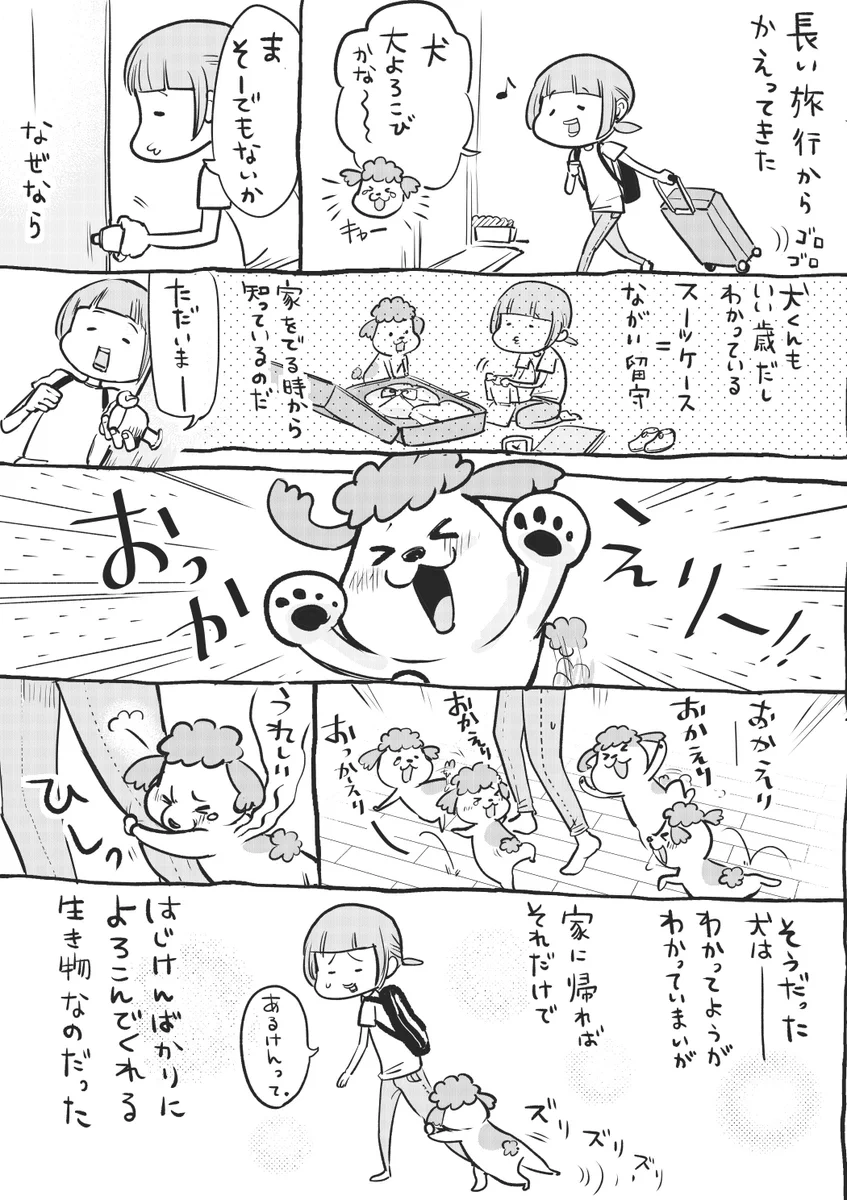 長い旅行から
かえってきた
ゴロ
ゴロ
♪
犬
大よろこび
かな〜〜
キャー
ま
そーでもないか
なぜなら
犬くんも
いい歳だし
わかっている
スーツケース
=
ながい留守
家をでる時から
知っているのだ
ただいまー
おっかえりー!!
おかえり
おかえり
おかえり
おっかえり
うれしい
ひしっ
そうだった
犬は――
わかってようが
わかっていまいが
家に帰れば
それだけで
あるけんって。
ズリ
ズリ
ズリ
はじけんばかりに
よろこんでくれる
生き物なのだった